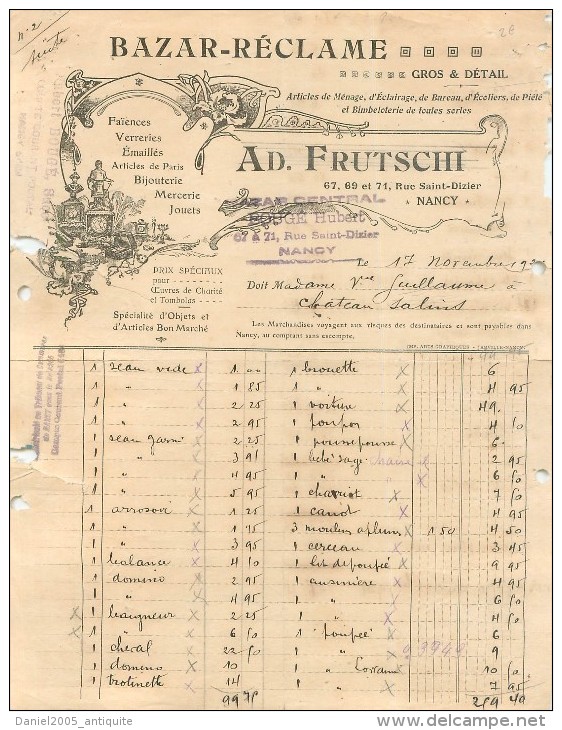 n° 2
suite
BAZAR-RÉCLAME
GROS & DÉTAIL
Articles de Ménage, d'Éclairage, de Bureau, d'Écoliers, de Piété
et Bimbeloterie de toutes sortes
Faïences
Verreries
Émaillés
Articles de Paris
Bijouterie
Mercerie
Jouets
AD. FRUTSCHI
67, 69 et 71, Rue Saint-Dizier
NANCY
BAZAR CENTRAL
ROUGÉ Hubert
67 à 71, Rue Saint-Dizier
NANCY
PRIX SPÉCIAUX
pour
Œuvres de Charité
et Tombolas
Spécialité d'Objets et
d'Articles Bon Marché
Le 17 Novembre 19
Doit Madame Vve Guillaume à
Chateau Salins
Les Marchandises voyagent aux risques des destinataires et sont payables
dans Nancy, au comptant sans escompte.
1 seau vide x 1 "" 1 brouette x 6
1 " 1 85 1 " x 4 95
1 " 2 25 1 voiture x 49.
1 " 2 95 1 x 4 50
1 seau garni 2 25 1 poussepousse x 6
1 " x 3 95 1 bébé x 2 95
1 " x 4 95 1 " x 6 50
1 " x 5 95 1 chariot x 7 50
1 arrosoir x 1 25 1 canot x 4 95
1 " x 1 75 3 moulins x 1 50 4 50
1 " x 3 95 1 cerceau x 3 45
1 balance x 4 50 1 lit de poupée x 9 95
1 domino x 2 95 1 cuisinière x 4 50
1 " x 4 95 1 " x 6 50
x 1 baigneur x 2 25 1 " x 4 50
x 1 " x 6 50 1 poupée x 6
1 cheval x 22 50 1 " 9
1 domino x 10 1 " x 10 50
1 trotinette x 14 1 " x 7 95
99 75 259 40
Daniel2005_antiquite
© delcampe.net